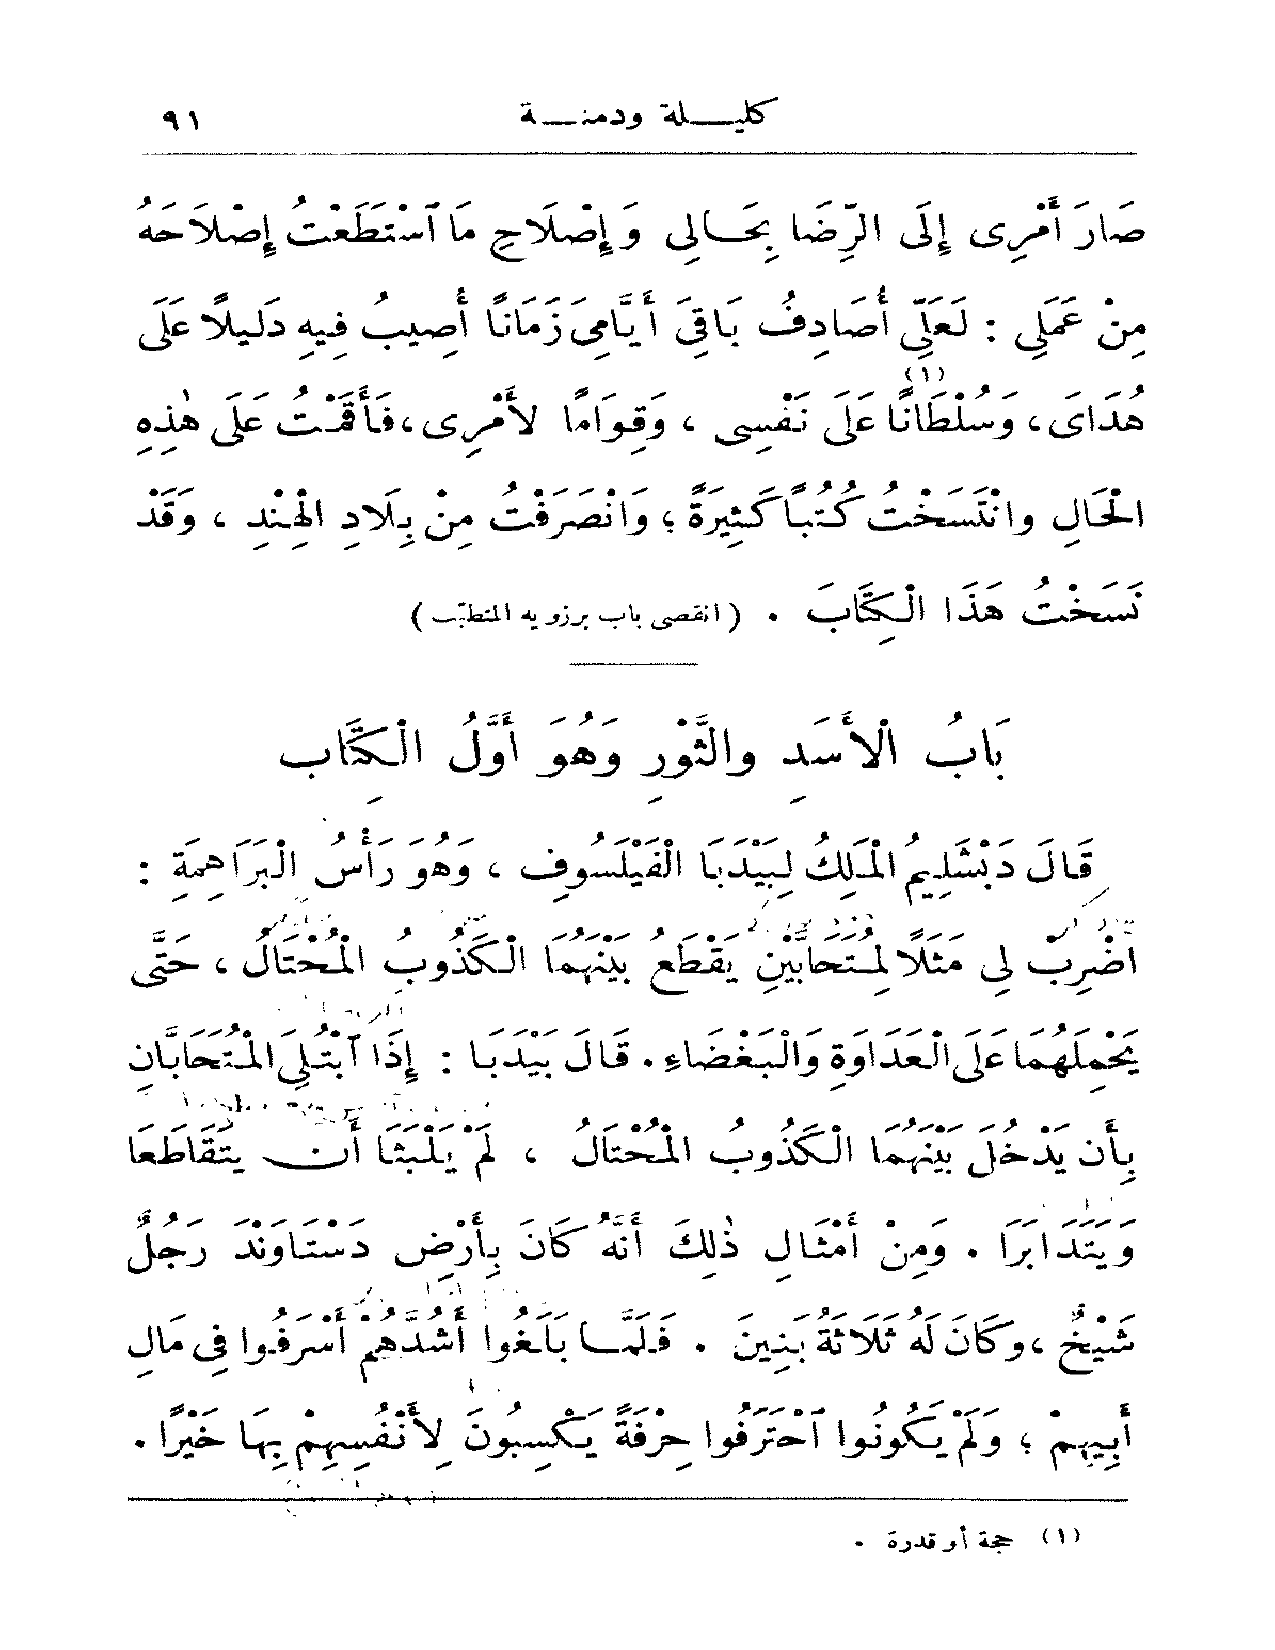 كليلة ودمنة ٩١
صَارَ أَمْرِى إِلَى الرِّضَا بِحَالِى وَإِصْلَاحِ مَا ٱسْتَطَعْتُ إِصْلَاحَهُ
مِنْ عَمَلِى : لَعَلِّى أُصَادِفُ بَاقِىَ أَيَّامِى زَمَانًا أُصِيبُ فِيهِ دَلِيلًا عَلَى
هُدَاىَ ، وَسُلْطَانًا (١) عَلَى نَفْسِى ، وَقِوَامًا لِأَمْرِى ، فَأَقَمْتُ عَلَى هٰذِهِ
الْحَالِ وانْتَسَخْتُ كُتُبًا كَثِيرَةً ؛ وَانْصَرَفْتُ مِنْ بِلَادِ الْهِنْدِ ، وَقَدْ
نَسَخْتُ هَذَا الْكِتَابَ . (انقضى باب برزويه المتطبّب)
بَابُ الْأَسَدِ والثَّوْرِ وَهُوَ أَوَّلُ الْكِتَابِ
قَالَ دَبْشَلِيمُ الْمَلِكُ لِبَيْدَبَا الْفَيْلَسُوفِ ، وَهُوَ رَأْسُ الْبَرَاهِمَةِ :
اضْرِبْ لِى مَثَلًا لِمُتَحَابَّيْنِ يَقْطَعُ بَيْنَهُمَا الْكَذُوبُ الْمُحْتَالُ ، حَتَّى
يَحْمِلَهُمَا عَلَى الْعَدَاوَةِ وَالْبَغْضَاءِ . قَالَ بَيْدَبَا : إِذَا ٱبْتُلِىَ الْمُتَحَابَّانِ
بِأَنْ يَدْخُلَ بَيْنَهُمَا الْكَذُوبُ الْمُحْتَالُ ، لَمْ يَلْبَثَا أَنْ يَتَقَاطَعَا
وَيَتَدَابَرَا . وَمِنْ أَمْثَالِ ذٰلِكَ أَنَّهُ كَانَ بِأَرْضِ دَسْتَاوَنْدَ رَجُلٌ
شَيْخٌ ، وَكَانَ لَهُ ثَلَاثَةُ بَنِينَ . فَلَمَّا بَلَغُوا أَشُدَّهُمْ أَسْرَفُوا فِى مَالِ
أَبِيهِمْ ؛ وَلَمْ يَكُونُوا ٱحْتَرَفُوا حِرْفَةً يَكْسِبُونَ لِأَنْفُسِهِمْ بِهَا خَيْرًا .
(١) حجة أو قدرة .